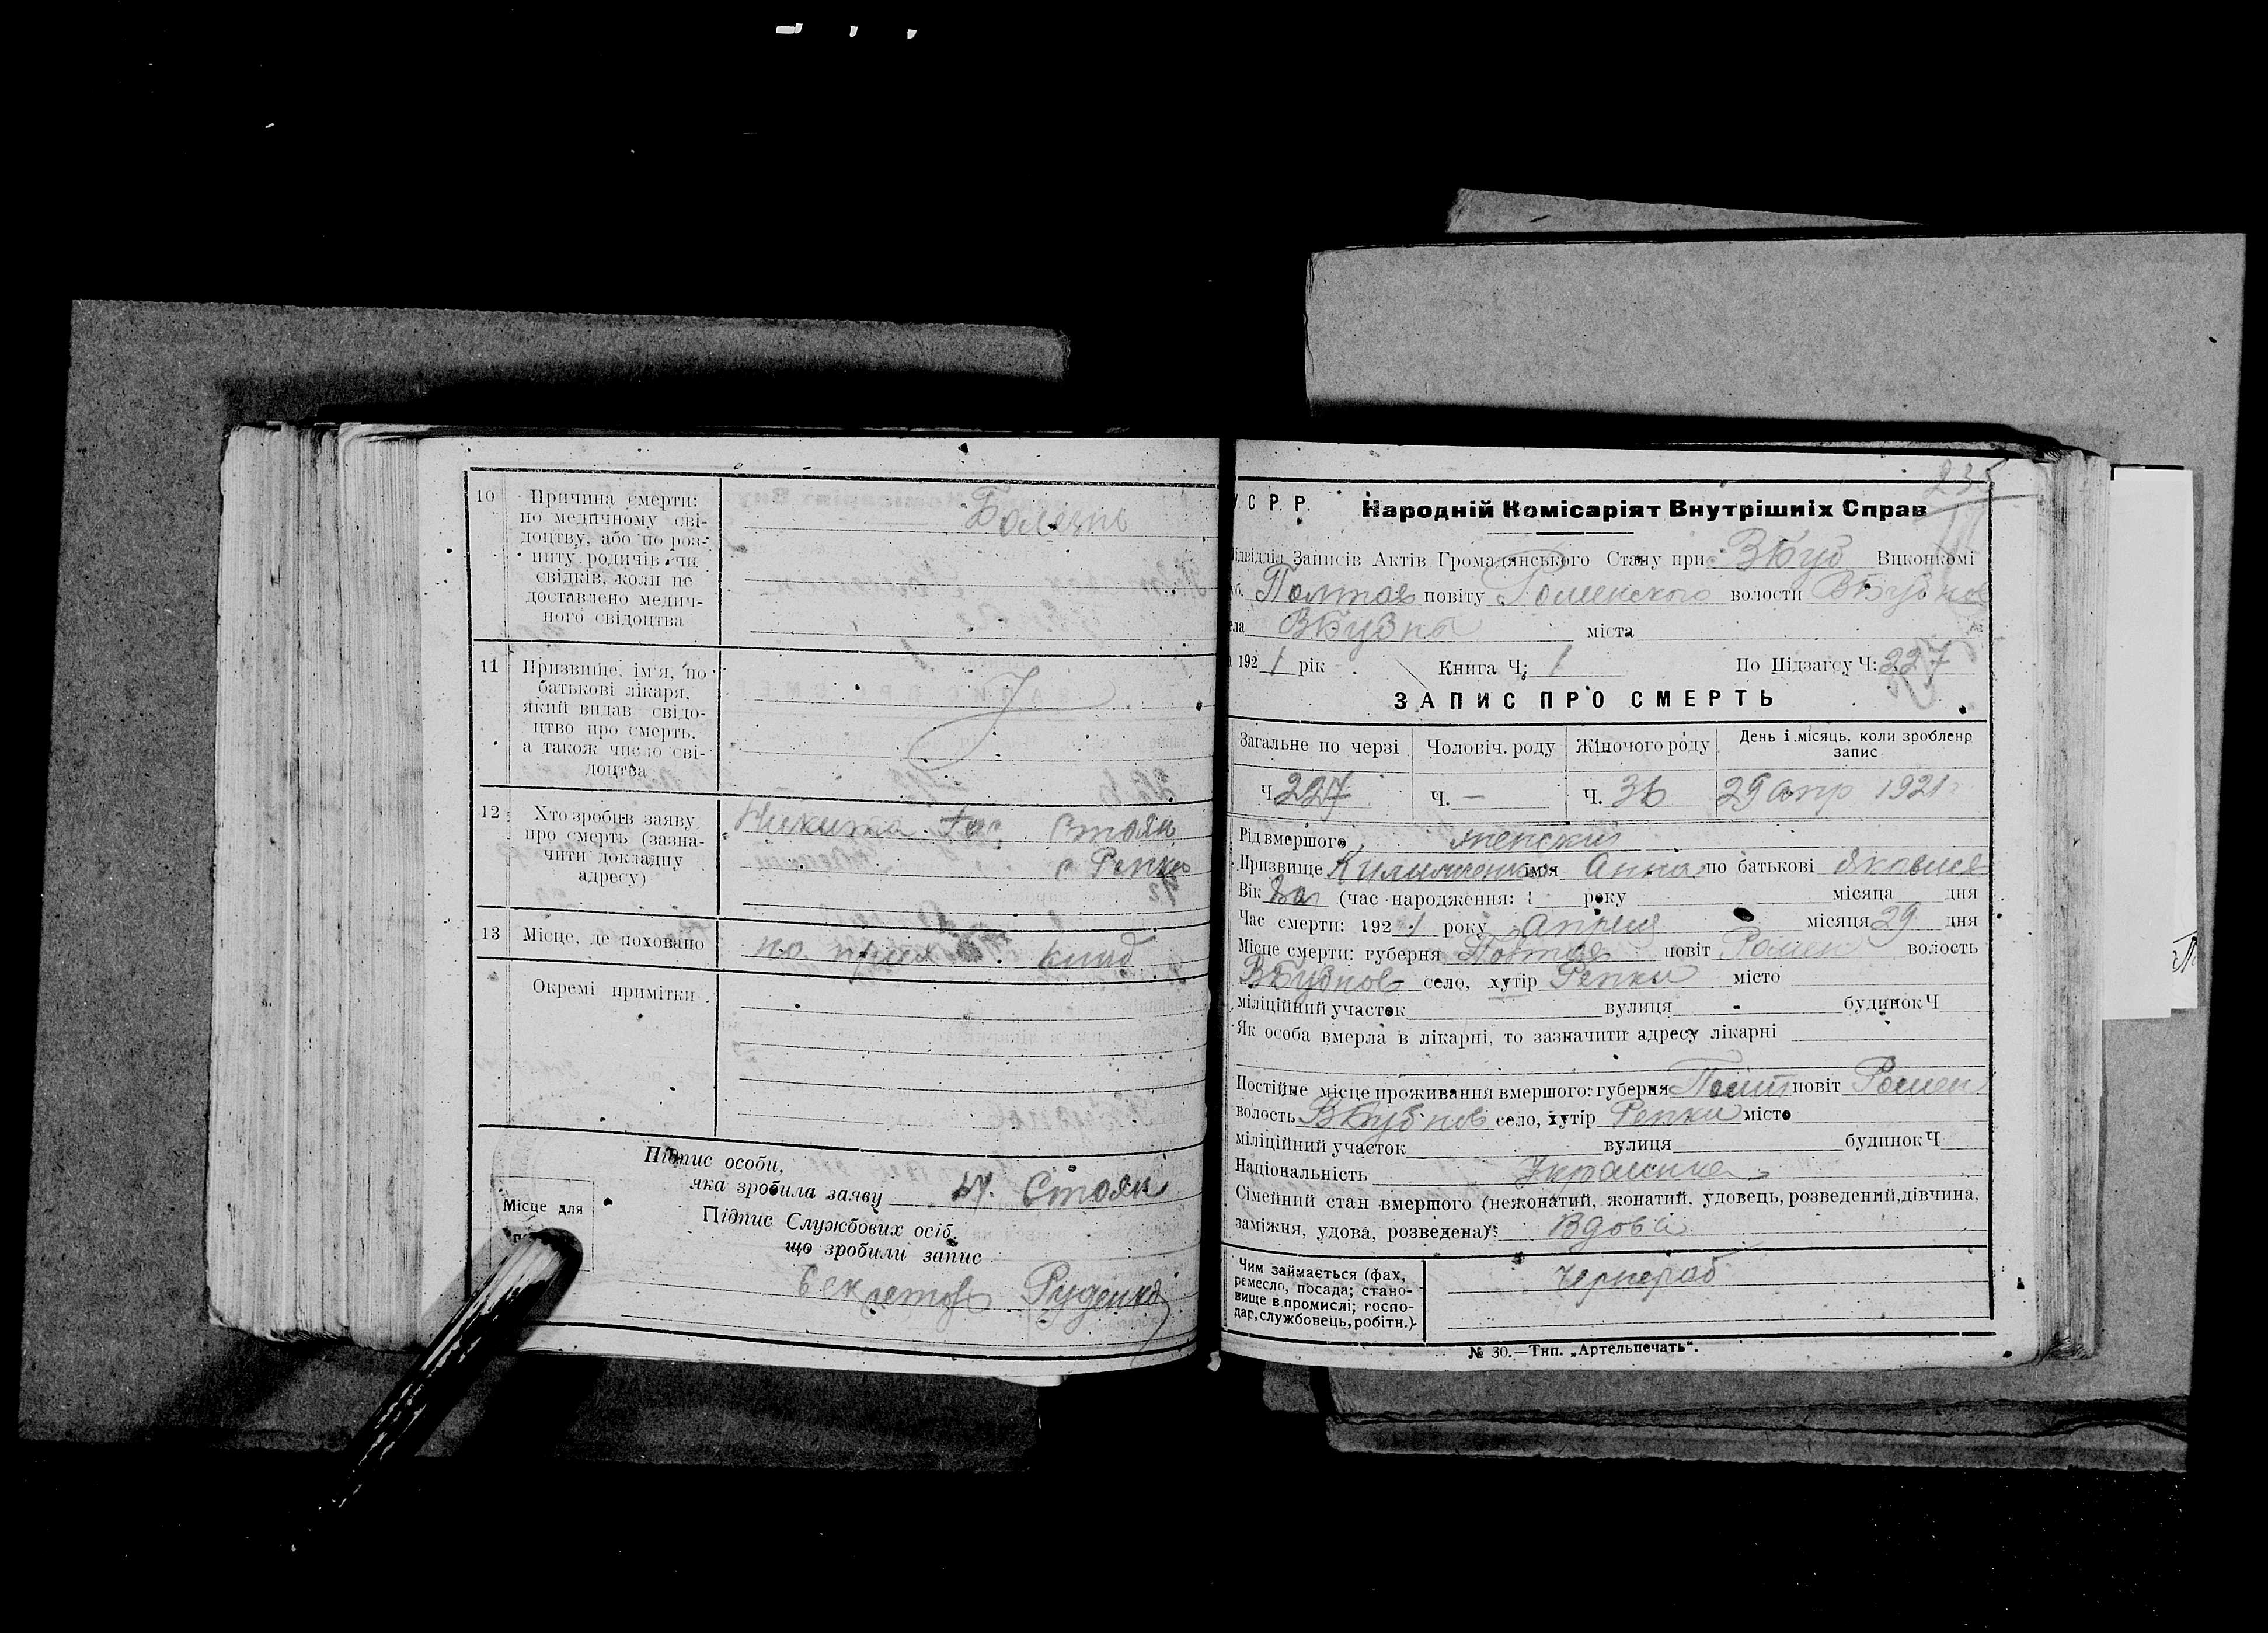 10 Причина смерти:
по медичному сві-
доцтву, або по роз-
питу родичів чи
свідків, коли не
доставлено медич-
ного свідоцтва
Болезнь
11 Призвище, ім'я, по
батькові лікаря,
який видав свідо-
цтво про смерть,
а також число сві-
доцтва
12 Хто зробив заяву
про смерть (зазна-
чити докладну
адресу)
Никита Стоян
с Репки
13 Місце, де поховано
на кладб
Окремі примітки
Підпис особи,
яка зробила заяву Н. Стоян
Місце для
Підпис Службових осіб,
що зробили запис
Секретарь Руденко
235
У С Р. Р. Народній Комісаріят Внутрішніх Справ
ідвідділ Записів Актів Громадянського Стану при ВБуб Виконкомі
уб. Полтав повіту Роменского волости ВБубнов
ела ВБубны міста
192 1 рік Книга Ч: 1 По Підзагсу Ч: 227
ЗАПИС ПРО СМЕРТЬ
Загальне по черзі Чоловіч. роду Жіночого роду День і місяць, коли зроблено
запис
Ч 227 Ч. — Ч. 36 29 апр 1921
Рід вмершого женский
Призвище ім'я Анна по батькові
Вік (час народження: 1 року місяца дня
Час смерти: 192 1 року Апреля місяця 29 дня
Місце смерти: губерня Полтав повіт Ромен волость
ВБубнов село, хутір Репки місто
міліційний участок вулиця - будинок Ч
Як особа вмерла в лікарні, то зазначити адресу лікарні
Постійне місце проживання вмершого: губерня Полт повіт Ромен
волость ВБубнов село, хутір Репки місто
міліційний участок вулиця будинок Ч
Національність Украинка
Сімейний стан вмершого (нежонатий, жонатий, удовець, розведений, дівчина,
заміжня, удова, розведена): Вдова
Чим займається (фах,
ремесло, посада; стано-
вище в промислі; госпо-
дар, службовець, робітн.)
Чернораб
№ 30.—Тип. „Артельпечать“.